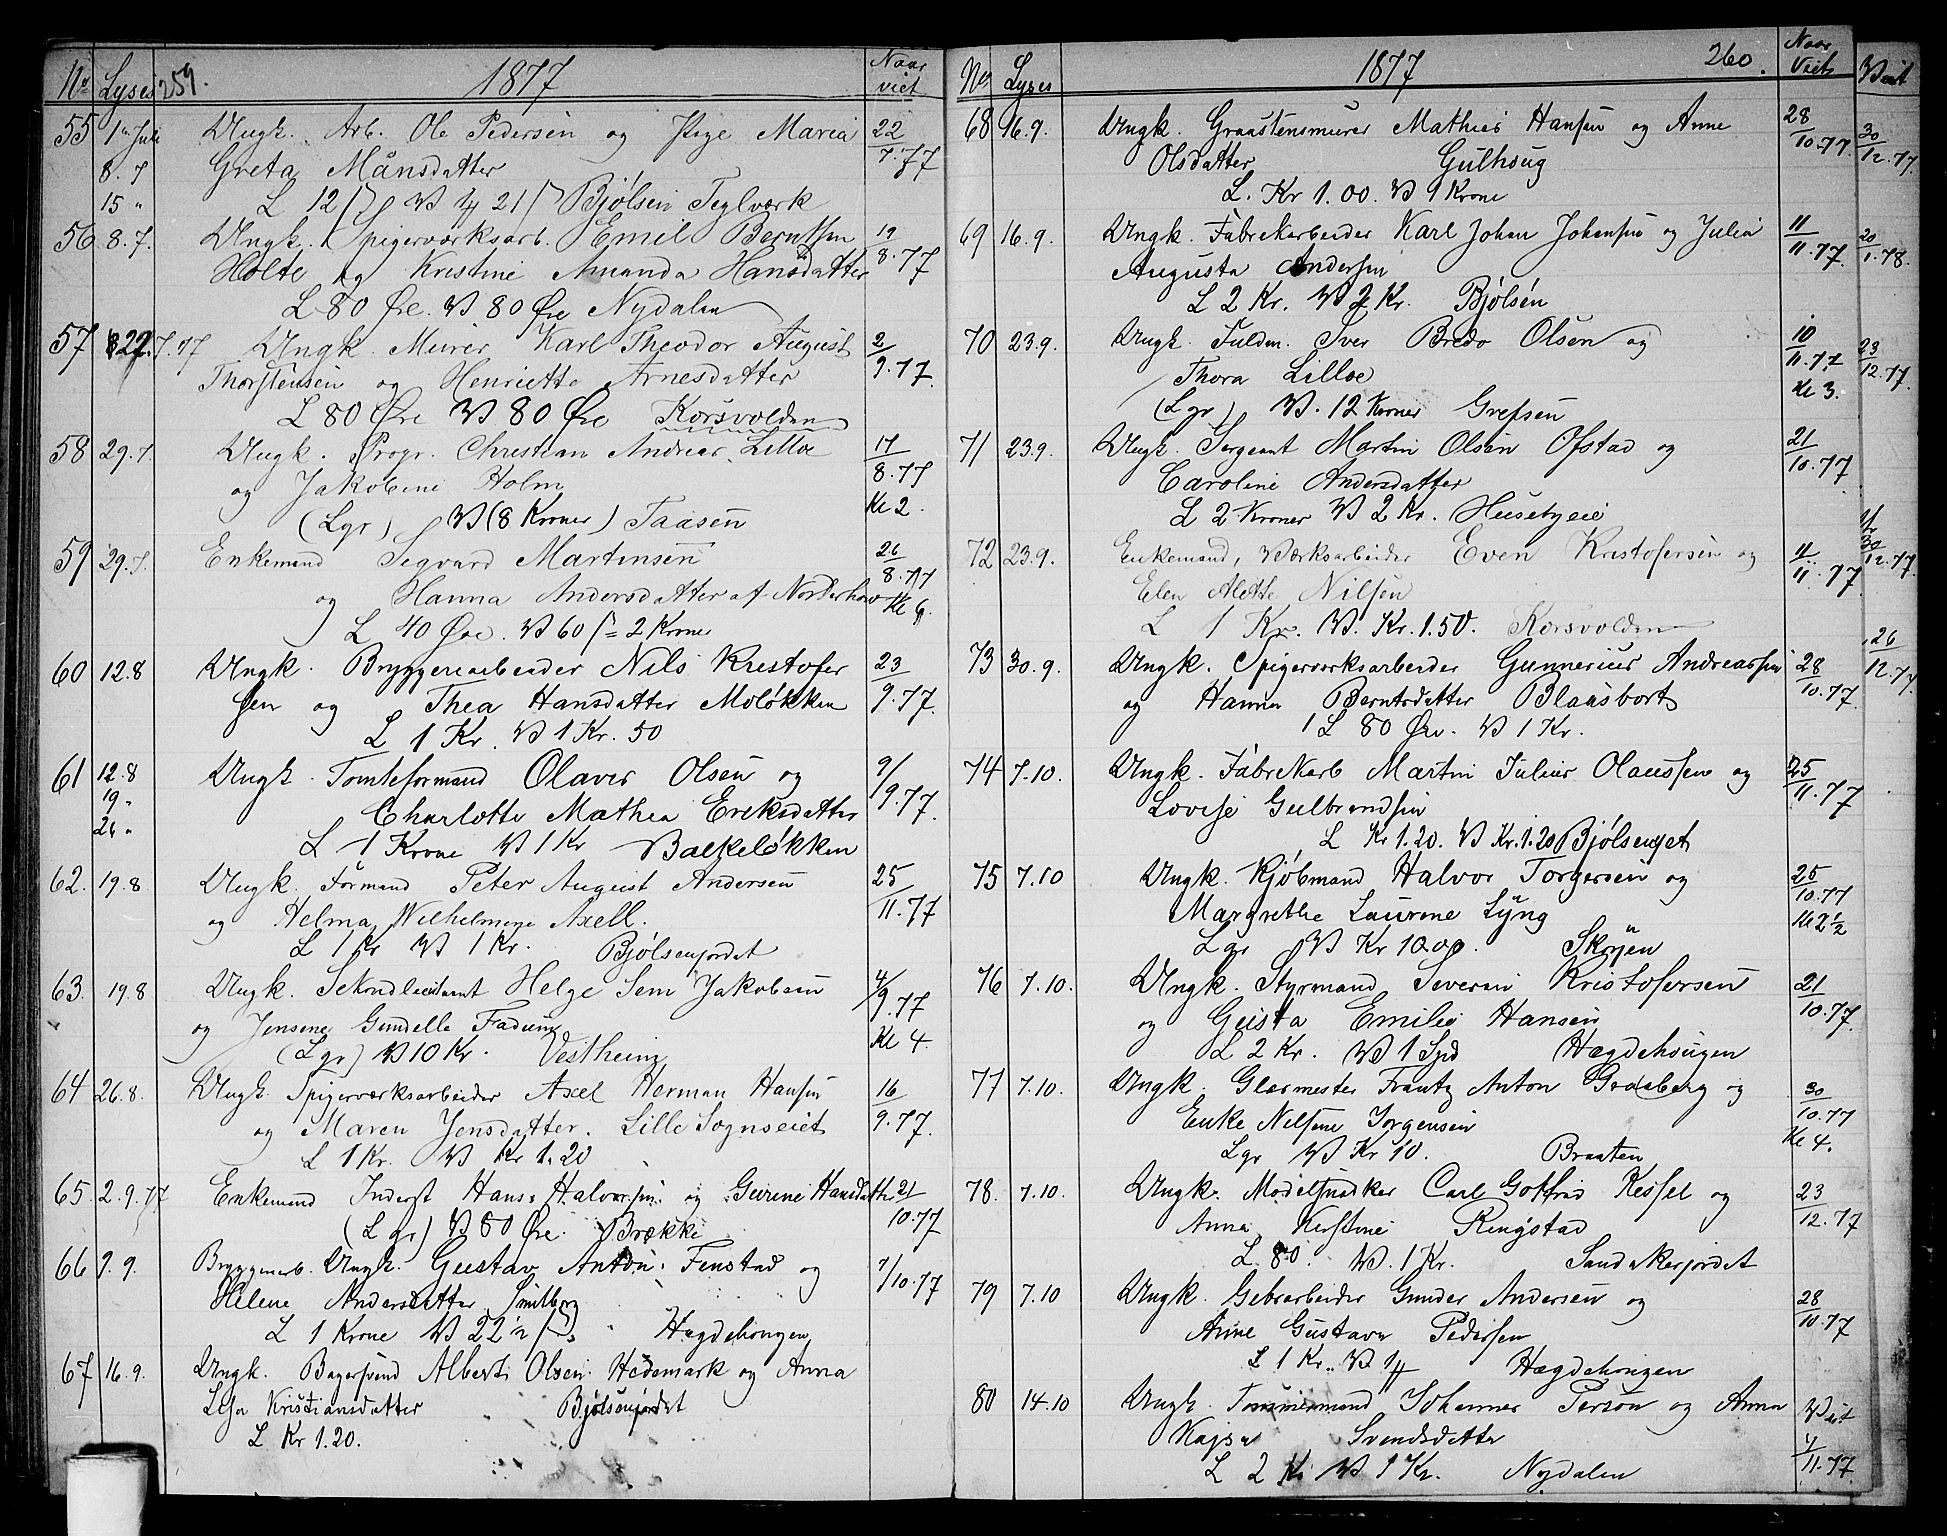 No Lyses 259. 1877 Naar viet
55 1ste Juli Ungk. Arb. Ole Pedersen og Pige Maria 22/7.77
8.7 Greta Månsdatter
15 " L 12 V 21 Bjølsen Teglværk
56 8.7. Ungk. Spigerværksarb. Emil Berntsen 19/8.77
Holte og Kristine Amanda Hansdatter
L 80 Øre. V 80 Øre Nydalen
57 22.7.77 Ungk. Murer Karl Theodor August 2/9.77.
Thorstensen og Henriette Arnesdatter
L 80 Øre V 80 Øre Korsvolden
58 29.7. Ungk. Progr. Christian Andreas Lilloe 17/8.77
og Jakobine Holm Kl 2.
(Lgr) V (8 Kroner) Taasen
59 29.7. Enkemand Sigvard Martinsen 26/8.77
og Hanna Andersdatter af Norderhov Kl 6.
L 40 Øre. V 60 = 2 Kroner
60 12.8 Ungk. Bryggeriarbeider Nils Kristofer 23/9.77.
sen og Thea Hansdatter Moløkken
L 1 Kr. V 1 Kr. 50
61 12.8 Ungk. Tomteformand Olaves Olsen og 9/9.77.
19 "
26 " Charlotte Mathea Eriksdatter
L 1 Krone V 1 Kr Bakkeløkken
62. 19.8 Ungk. Formand Peter August Andersen 25/11.77
og Helma Wilhelmine Axell.
L 1 Kr V 1 Kr. Bjølsenjordet
63. 19.8 Ungk. Sekondlieutnant Helge Sem Jakobsen 4/9.77
og Jensene Gundelle Fadum Kl 4.
(Lgr) V 10 Kr. Vestheim
64 26.8. Ungk. Spigerværksarbeider Axel Herman Hansen 16/9.77.
og Maren Jensdatter. Lille Sognseiet
L 1 Kr. V Kr 1.20
65 2.9.77 Enkemand Inderst Hans Halvorsen og Gurine Hansdatter 21/10.77
(Lgr) V 80 Øre. Brække
66 9.9. Bryggeriarb. Ungk. Gustav Anton Finstad og 7/10.77
Helene Andersdatter Smilberg
L 1 Krone V 22½ Hægdehougen
67 16.9. Ungk. Bagersvend Albert Olsen Hedemark og Anna
Lisa Kristiansdatter Bjølsenjordet
L Kr 1.20.
No Lyses 1877 260. Naar Viet Viet
68 16.9. Ungk. Graastensmurer Mathies Hansen og Anne 28/10.77. 30/12.77.
Olsdatter Gulhoug
L. Kr 1.00. V 1 Krone
69 16.9. Ungk. Fabrikarbeider Karl Johan Johansen og Julia 11/11.77. 20/1.78.
Augusta Andersen
L 2 Kr. V 2 Kr. Bjølsen
70 23.9. Ungk. Fuldm. Iver Bredo Olsen og 10/11.77 23/12.77.
Thora Lilloe Kl 3.
(Lgr) V. 12 Kroner Grefsen
71 23.9. Ungk. Sergeant Martin Olsen Ofstad og 21/10.77
Caroline Andersdatter
L 2 Kroner V 2 Kr. Husebyeie
72 23.9. Enkemand, Værksarbeider Even Kristofersen og 11/11.77 30/12.77.
Elen Alethe Nilsen
L 1 Kr. V. Kr. 1.50. Korsvolden
73 30.9. Ungk. Spigerværksarbeider Gunnerius Andreassen 28/10.77. 26/12.77.
og Hanna Berntsdatter Blaasbort
L 80 Øre. V 1 Kr.
74 7.10. Ungk. Fabrikarb Martin Julius Olaussen og 25/11.77
Lovise Gulbrandsen
L Kr 1.20. V Kr. 1.20 Bjølsenget
75 7.10 Ungk. Kjøbmand Halvor Torgersen og 25/10.77
Margrethe Laurene Lyng Kl 2½
Lgr V Kr 10.00. Skøyen
76 7.10. Ungk. Styrmand Severin Kristofersen 21/10.77.
og Gusta Emilie Hansen
L 2 Kr. V 1 Spd Hægdehougen
77 7.10. Ungk. Glasmester Frantz Anton Graaberg og 30/10.77
Enke Nilsine Jørgensen Kl 4.
Lgr V Kr 10. Braaten
78. 7.10. Ungk. Modelsnedker Carl Gotfrid Kessel og 23/12.77
Anna Kirstine Ringstad
L 80. V. 1 Kr. Sandakerjordet
79 7.10 Ungk. Gebrarbeider Gunder Andersen og 28/10.77
Anne Gustava Pedersen
L 1 Kr. V 1 Hægdehougen
80 14.10 Ungk. Tømmermand Johannes Person og Anna Viet
Kajsa Svendsdatter 4/11.77.
L 2 Kr V 1 Kr. Nydalen